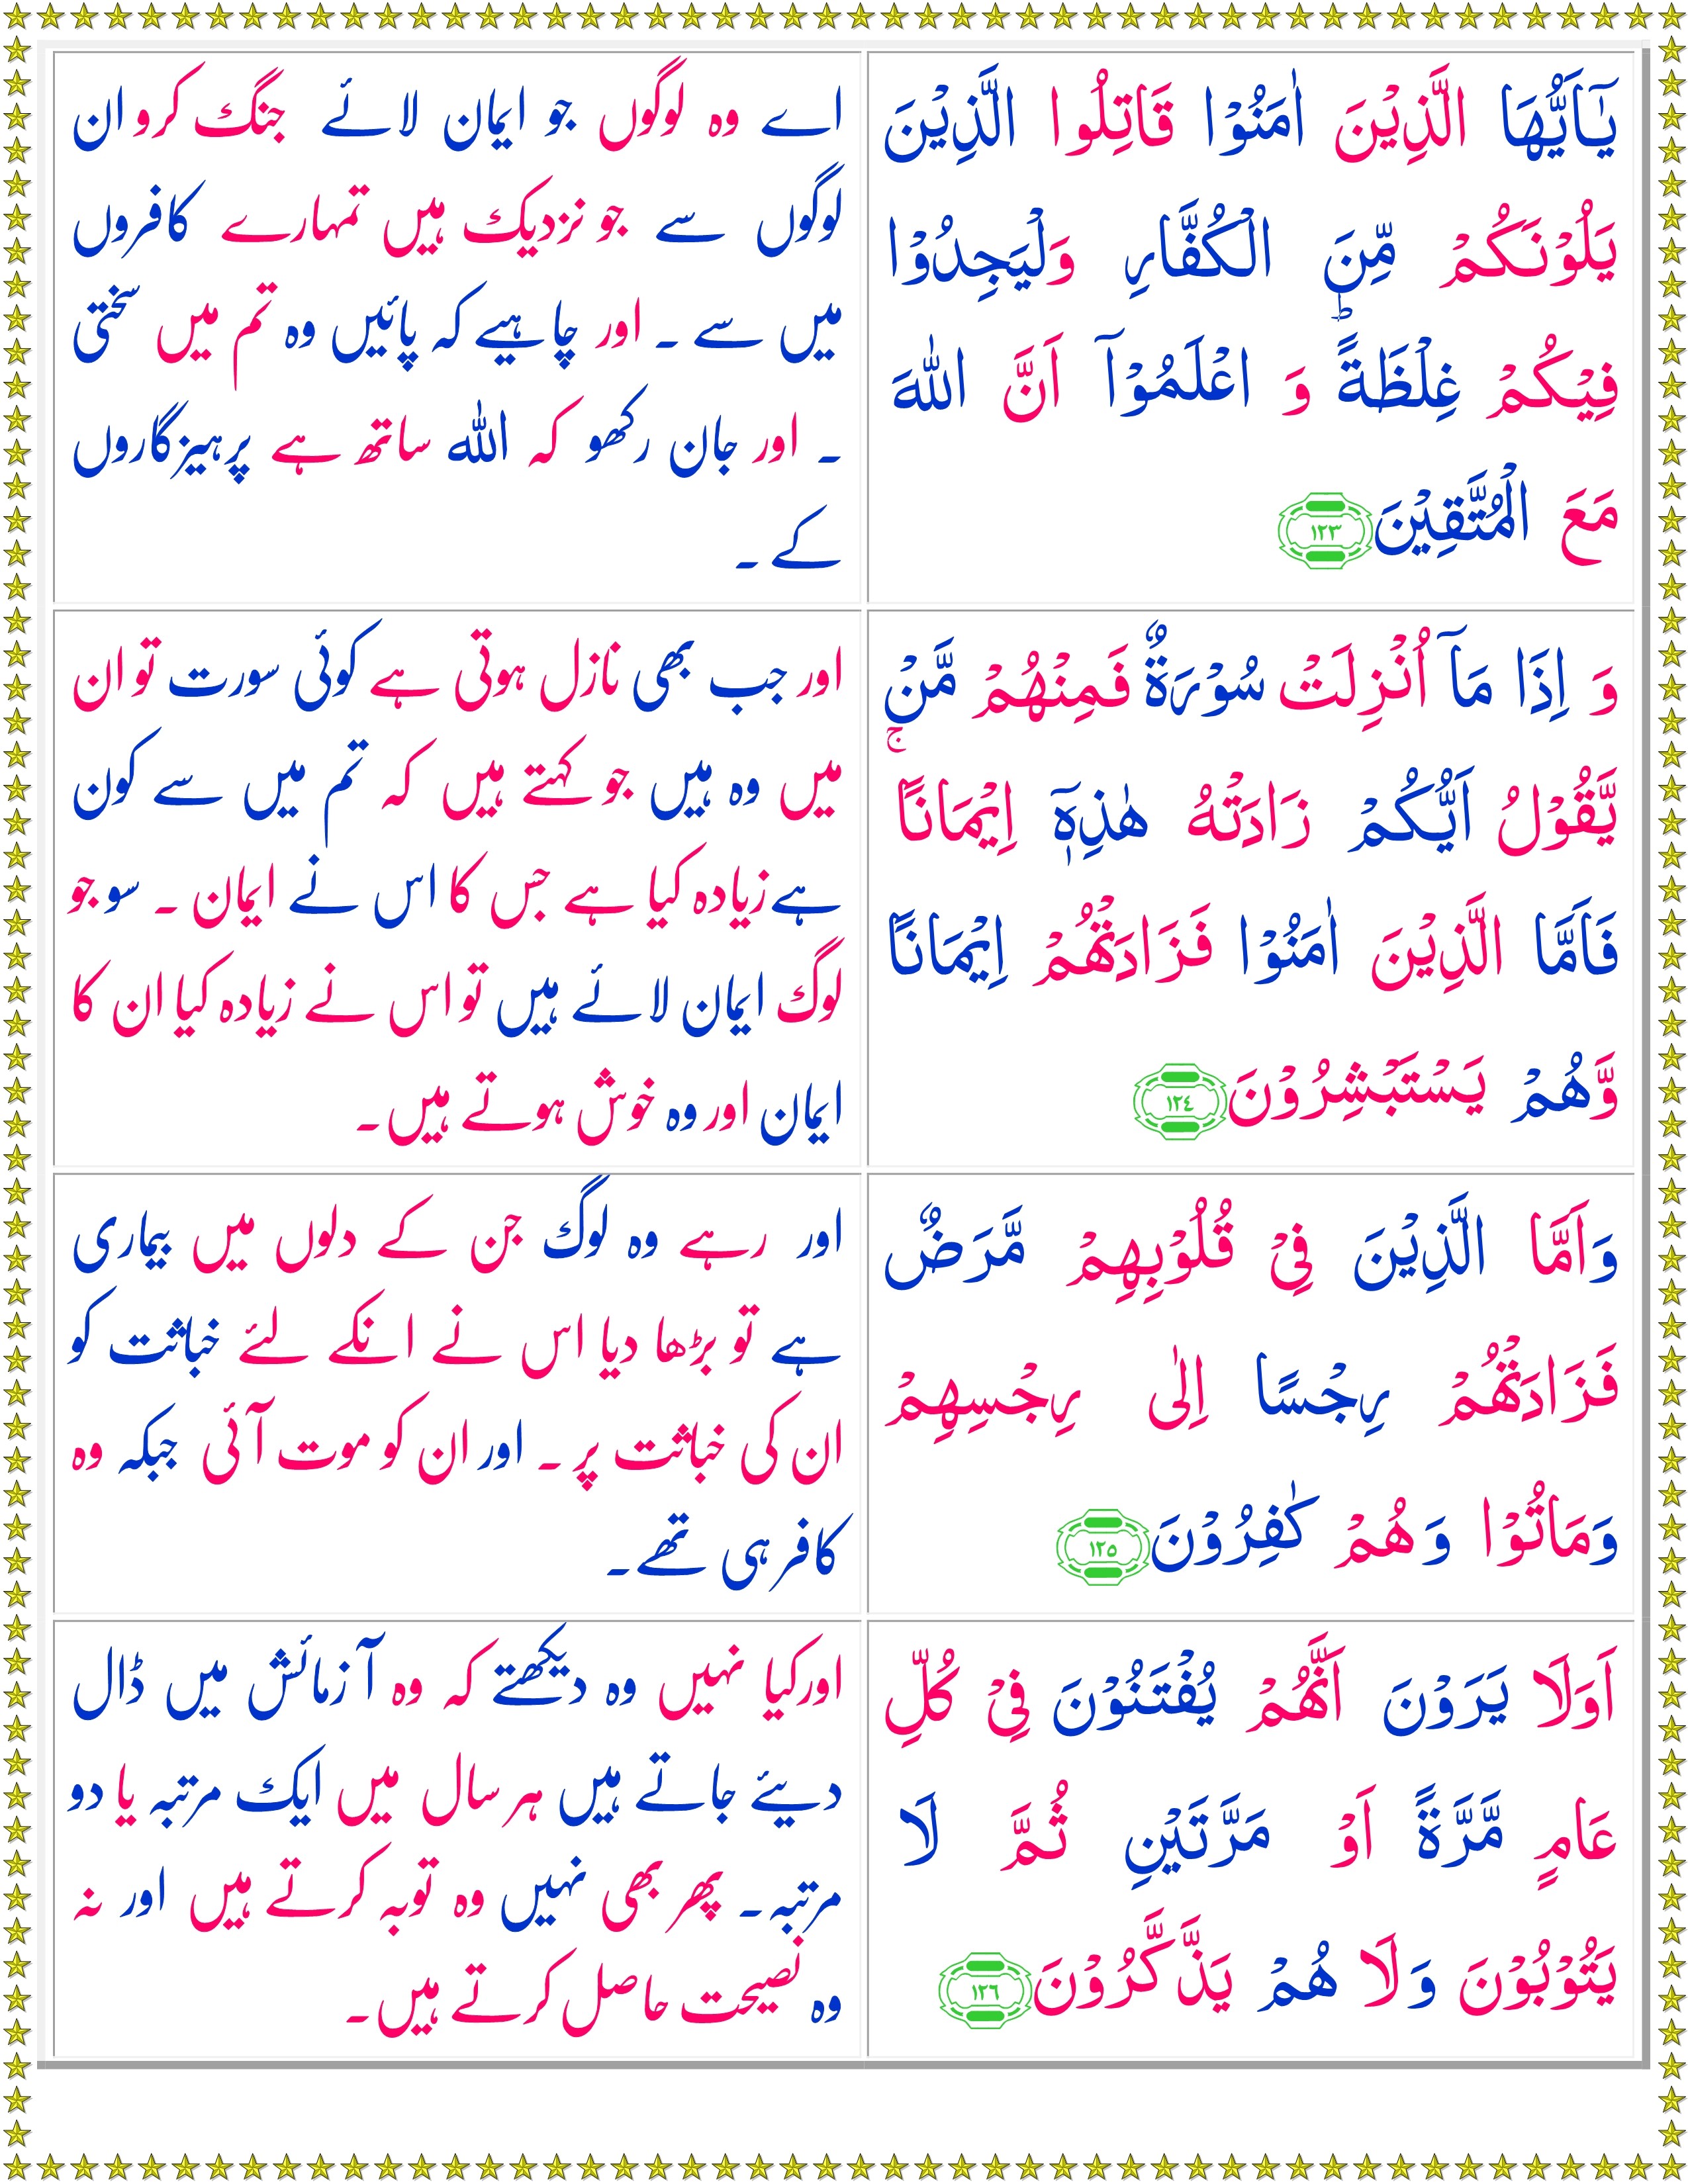 يٰۤاَيُّهَا الَّذِيْنَ اٰمَنُوْا قَاتِلُوا الَّذِيْنَ
يَلُوْنَكُمْ مِّنَ الْكُفَّارِ وَلْيَجِدُوْا
فِيْكُمْ غِلْظَةً ؕ وَ اعْلَمُوْۤا اَنَّ اللّٰهَ
مَعَ الْمُتَّقِيْنَ ١٢٣
اے وہ لوگوں جو ایمان لائے جنگ کرو ان
لوگوں سے جو نزدیک ہیں تمہارے کافروں
میں سے ۔ اور چاہیے کہ پائیں وہ تم میں سختی
۔ اور جان رکھو کہ اللہ ساتھ ہے پرہیزگاروں
کے ۔
وَ اِذَا مَاۤ اُنْزِلَتْ سُوْرَةٌ فَمِنْهُمْ مَّنْ
يَّقُوْلُ اَيُّكُمْ زَادَتْهُ هٰذِهٖۤ اِيْمَانًا ۚ
فَاَمَّا الَّذِيْنَ اٰمَنُوْا فَزَادَتْهُمْ اِيْمَانًا
وَّهُمْ يَسْتَبْشِرُوْنَ ١٢٤
اور جب بھی نازل ہوتی ہے کوئی سورت تو ان
میں وہ ہیں جو کہتے ہیں کہ تم میں سے کون
ہے زیادہ کیا ہے جس کا اس نے ایمان ۔ سو جو
لوگ ایمان لائے ہیں تو اس نے زیادہ کیا ان کا
ایمان اور وہ خوش ہوتے ہیں۔
وَاَمَّا الَّذِيْنَ فِيْ قُلُوْبِهِمْ مَّرَضٌ
فَزَادَتْهُمْ رِجْسًا اِلٰى رِجْسِهِمْ
وَمَاتُوْا وَهُمْ كٰفِرُوْنَ ١٢٥
اور رہے وہ لوگ جن کے دلوں میں بیماری
ہے تو بڑھا دیا اس نے انکے لئے خباثت کو
ان کی خباثت پر ۔ اور ان کو موت آئی جبکہ وہ
کافر ہی تھے۔
اَوَلَا يَرَوْنَ اَنَّهُمْ يُفْتَنُوْنَ فِيْ كُلِّ
عَامٍ مَّرَّةً اَوْ مَرَّتَيْنِ ثُمَّ لَا
يَتُوْبُوْنَ وَلَا هُمْ يَذَّكَّرُوْنَ ١٢٦
اور کیا نہیں وہ دیکھتے کہ وہ آزمائش میں ڈال
دیئے جاتے ہیں ہر سال میں ایک مرتبہ یا دو
مرتبہ۔ پھر بھی نہیں وہ توبہ کرتے ہیں اور نہ
وہ نصیحت حاصل کرتے ہیں۔